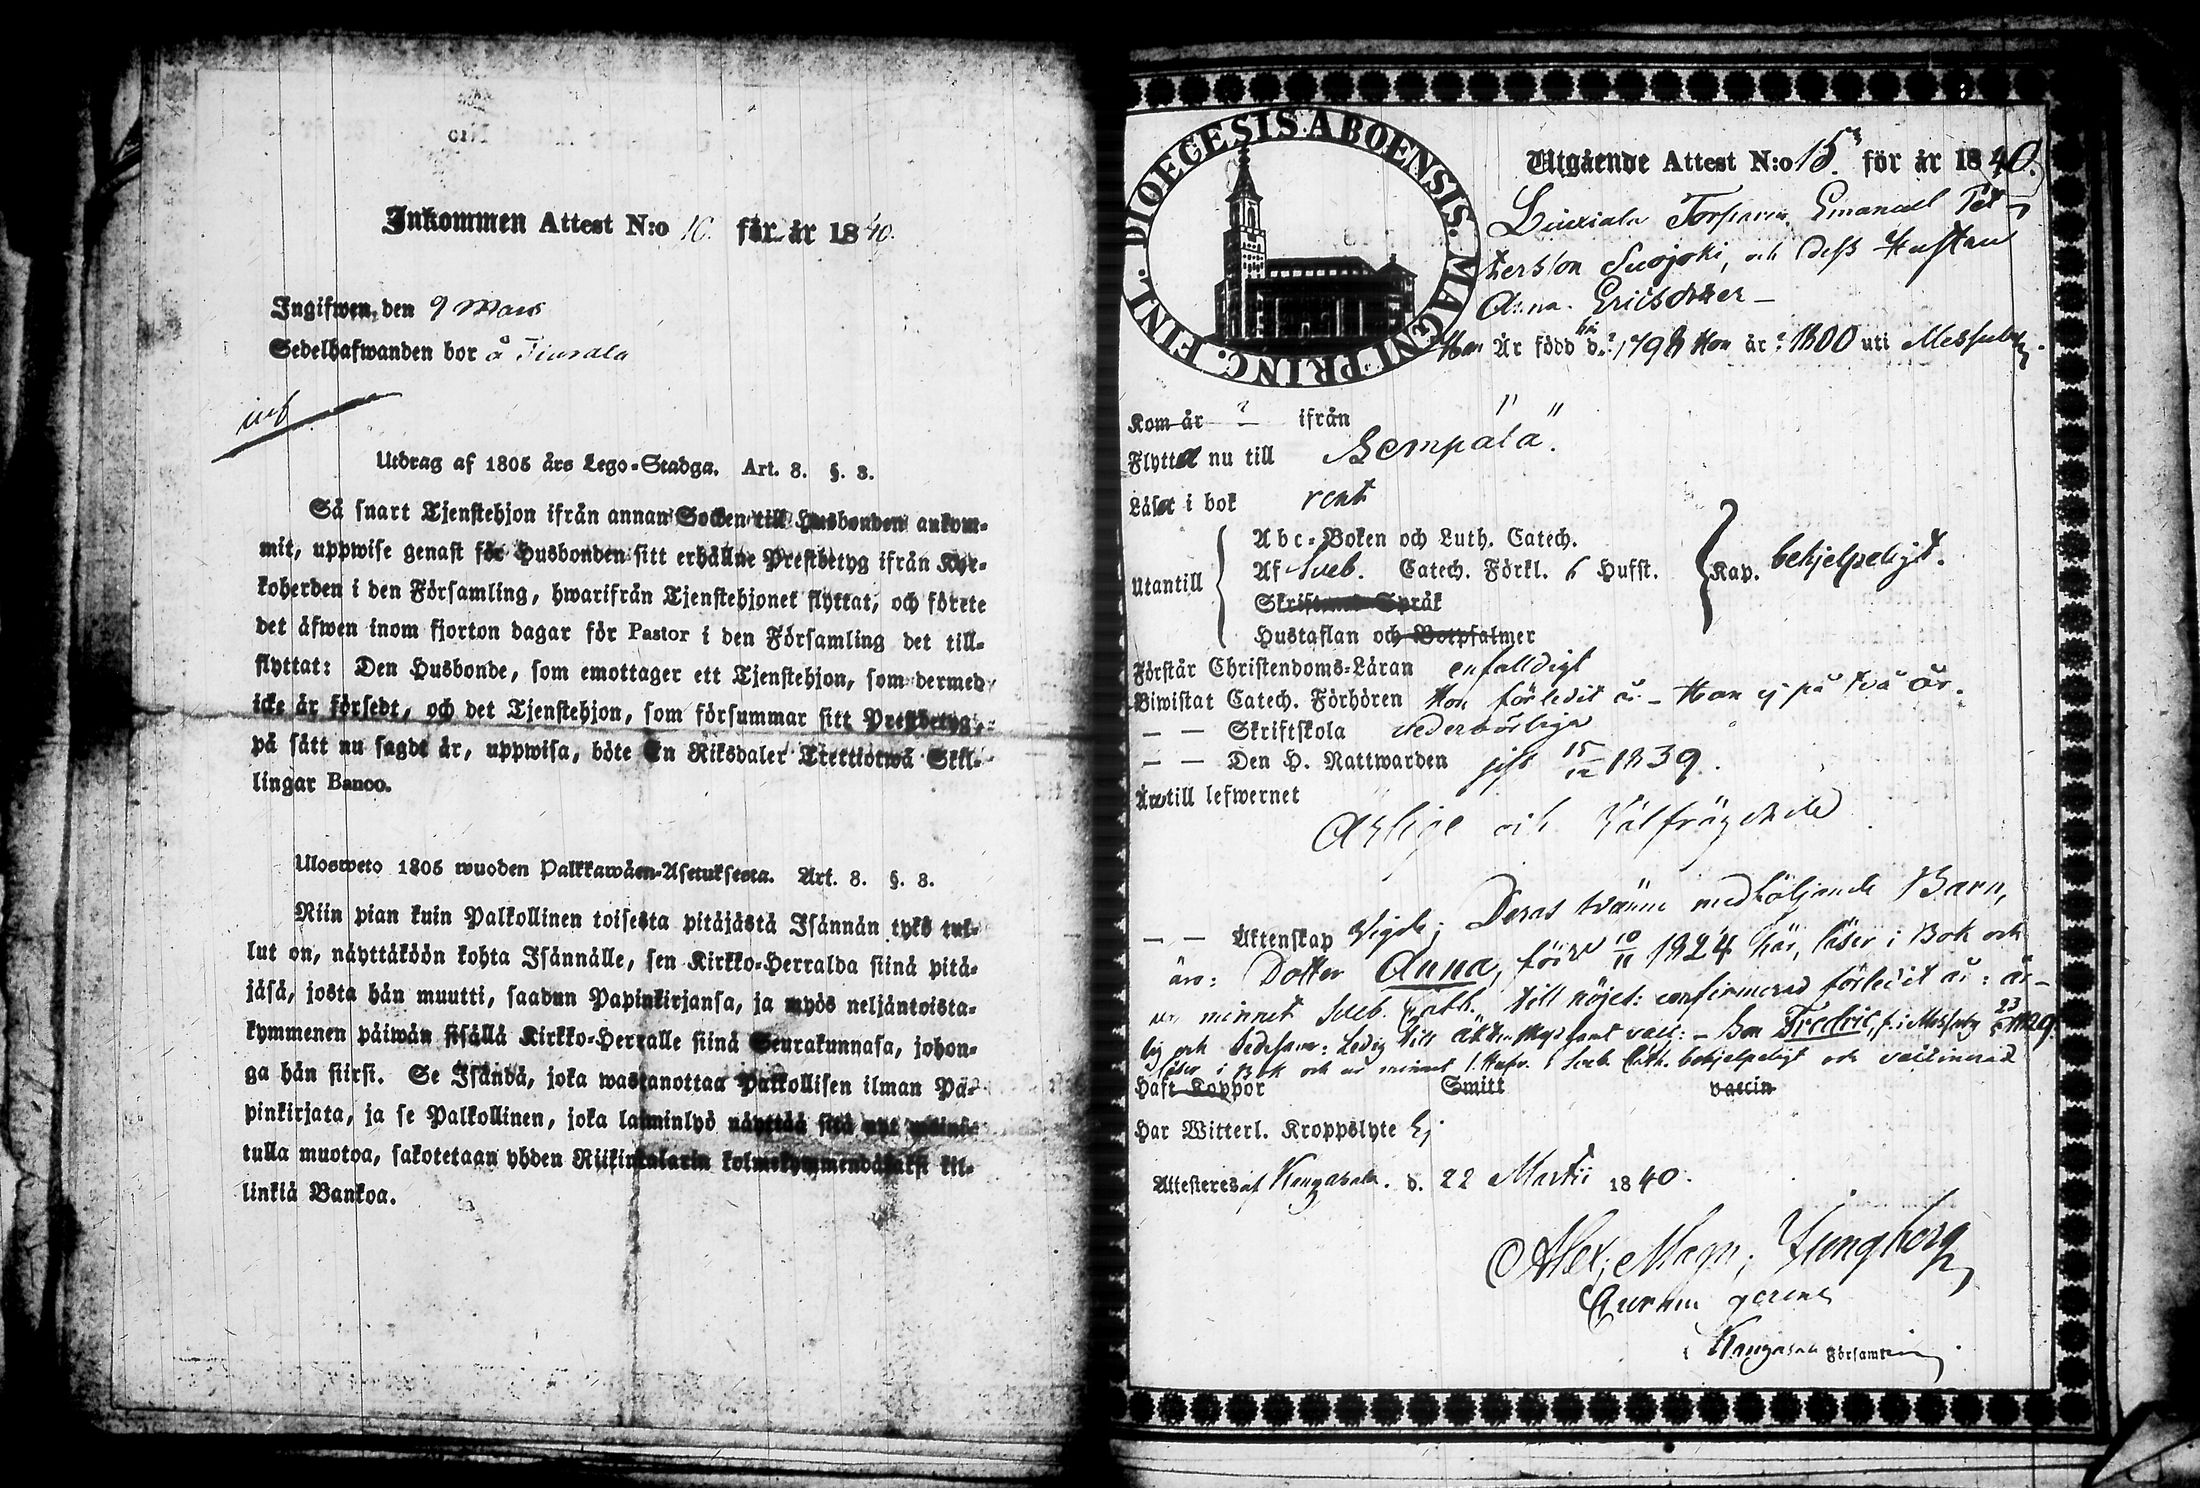 Inkommen Attest N:o 10. för år 1840.
Ingifwen, den 9 Mars
Sedelhafwanden bor å
Utdrag af 1805 års Lego-Stadga. Art. 8. §. 3.
Så snart Tjenstehjon ifrån annan Socken till Husbonden ankom-
mit, uppwise genast för Husbonden sitt erhållne Prestbetyg ifrån Kyr-
koherden i den Församling, hwarifrån Tjenstehjonet flyttat, och förete
det äfwen inom fjorton dagar för Pastor i den Församling det till-
flyttat: Den Husbonde, som emottager ett Tjenstehjon, som dermed
icke är försedt, och det Tjenstehjon, som försummar sitt Prestbetyg,
på sätt nu sagdt är, uppwisa, böte En Riksdaler Trettiotwå Skil-
lingar Banco.
Ulosweto 1805 wuoden Palkkawäen-Asetuksesta. Art. 8. §. 3.
Niin pian kuin Palkollinen toisesta pitäjästä Isännän tykö tul-
lut on, näyttäköön kohta Isännälle, sen Kirkko-Herralda siinä pitä-
jäsä, josta hän muutti, saadun Papinkirjansa, ja myös neljäntoista-
kymmenen päiwän sisällä Kirkko-Herralle siinä Seurakunnasa, johon-
ga hän siirsi. Se Isändä, joka wastanottaa Palkollisen ilman Pa-
pinkirjata, ja se Palkollinen, joka laiminlyö näyttää sitä nyt
tulla muotoa, sakotetaan yhden Riikintalarin kolmekymmendäkaksi kil-
linkiä Bankoa.
DIOECESIS ABOENSIS. MAGNI PRINC. FINL.
Utgående Attest N:o 15. för år 1840.
Torparen Emanuel Pet-
tersson Suojoki, och Dess Hustru
Anna Ericsdotter –
Han Är född d. 1798 Hon år 1800 uti Messuby.
Kom år ? ifrån " "
Flytta nu till Lempälä.
Läser i bok rent
Utantill
Abc-Boken och Luth. Catech.
Af Sveb. Catech. Förkl. 6 Hufst.
Skriftens Språk
Hustaflan och Botpsalmer
Kap. behjelpeligt.
Förstår Christendoms-Läran enfalldigt
Biwistat Catech. Förhören Hon förledit år – Han ej på två år.
— — Skriftskola vederbörligen
— — Den H. Nattwarden sist 15/12 1839.
Äro till lefwernet
Ärlige och Välfrägdade
— — Äktenskap Vigde; Deras tvänne medföljande Barn,
äro: Dotter Anna, född 10/11 1824 här, läser i Bok och
ur minnet Sveb. Cath. till nöjet: confirmerad förledit år: är-
lig och Ledig till Äktenskap samt vacc: – Son Fredric, f. i Messuby 23/ 1829.
läser i Bok och ur minnet Sveb. Cath. behjelpeligt och vaccinerad
Haft Koppor Smitt vaccin
Har Witterl. Kroppslyte Ej
Attesteres af Kangasala. d. 22 Martii 1840.
Alex. Magn. Ljungberg
i Kangasala Församling